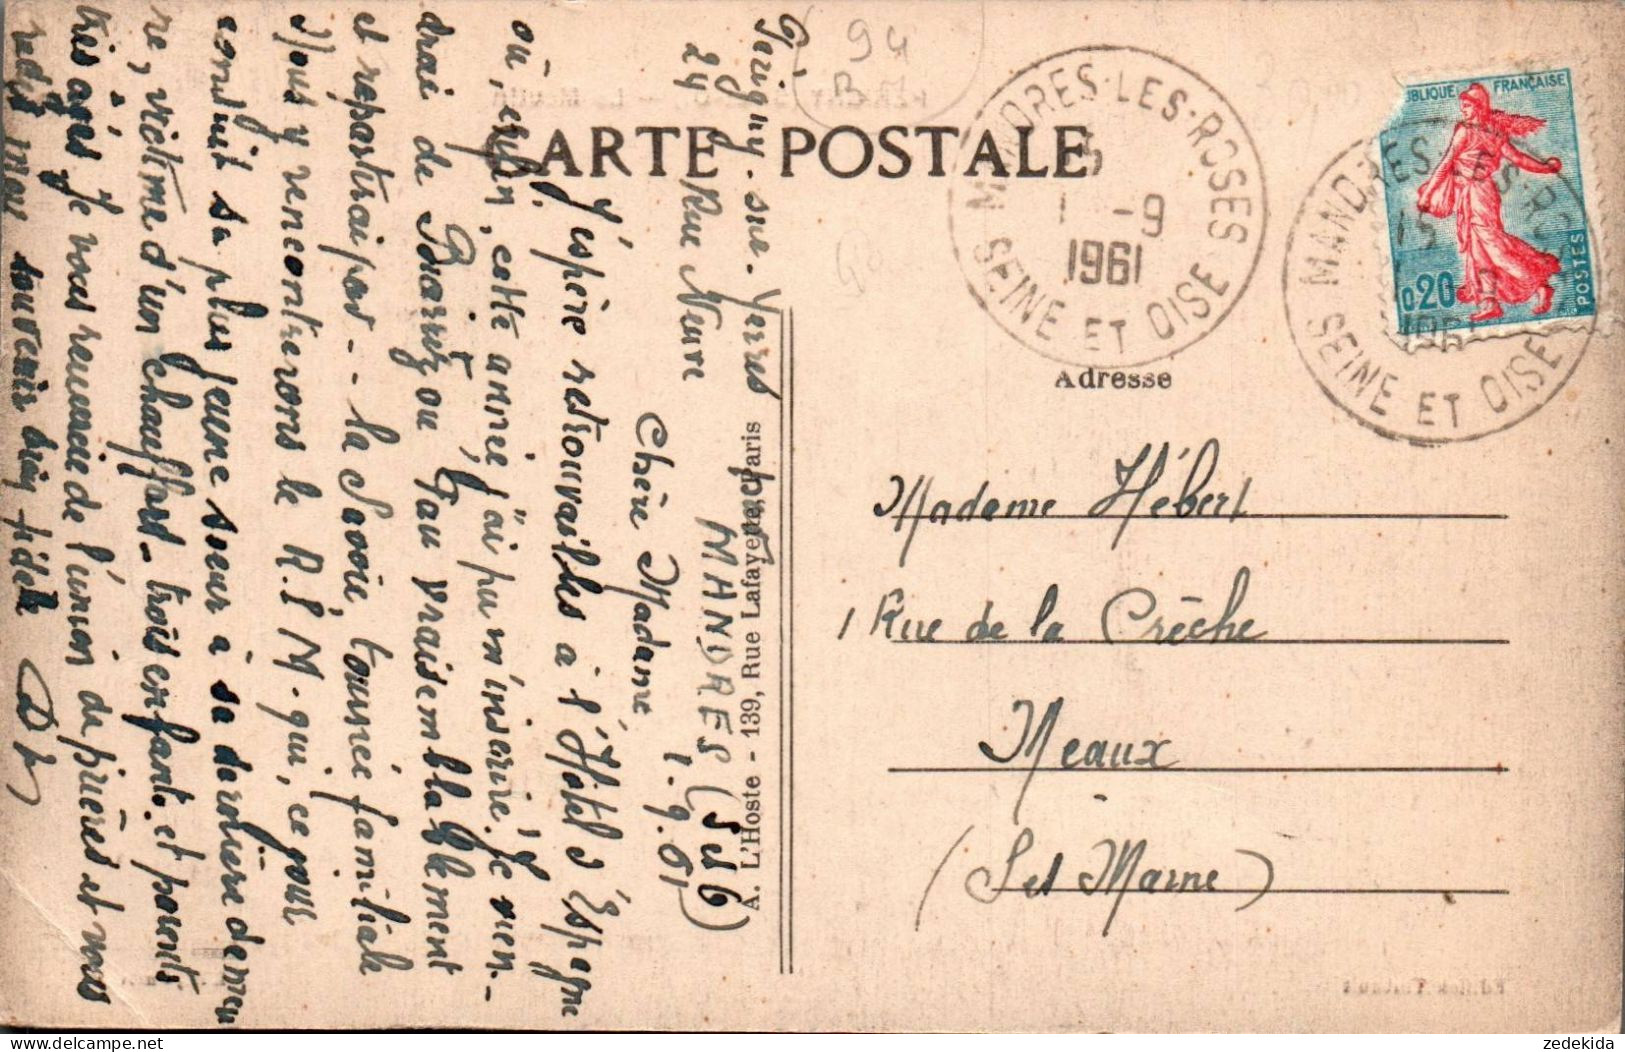 94
B
CARTE POSTALE
MANDRES-LES-ROSES
15
1 -9
1961
SEINE ET OISE
RÉPUBLIQUE FRANÇAISE
0,20
POSTES
MANDRES-LES-RO
15
SEINE ET OISE
Adresse
Madame Hébert
1 Rue de la Crèche
Meaux
(Set Marne)
A. L'Hoste - 139, Rue Lafayette, Paris
Périgny-sur-Yerres
24 Rue Neuve
MANDRES (S et O)
1.9.61
Chère Madame
J'espère
à l'Hôtel d'Espagne
où, enfin, cette année j'ai pu m'inscrire. Je vien-
drai de Biarritz ou Pau vraisemblablement
et repartirai par -- la Savoie, tournée familiale
Nous y rencontrerons le R.P M. qui, ce jour
conduit sa plus jeune soeur à sa dernière demeu
re, victime d'un chauffard - trois enfants et parents
très âgés. Je vous remercie de l'union de prières et vous
redis mon souvenir bien fidèle
zedekida